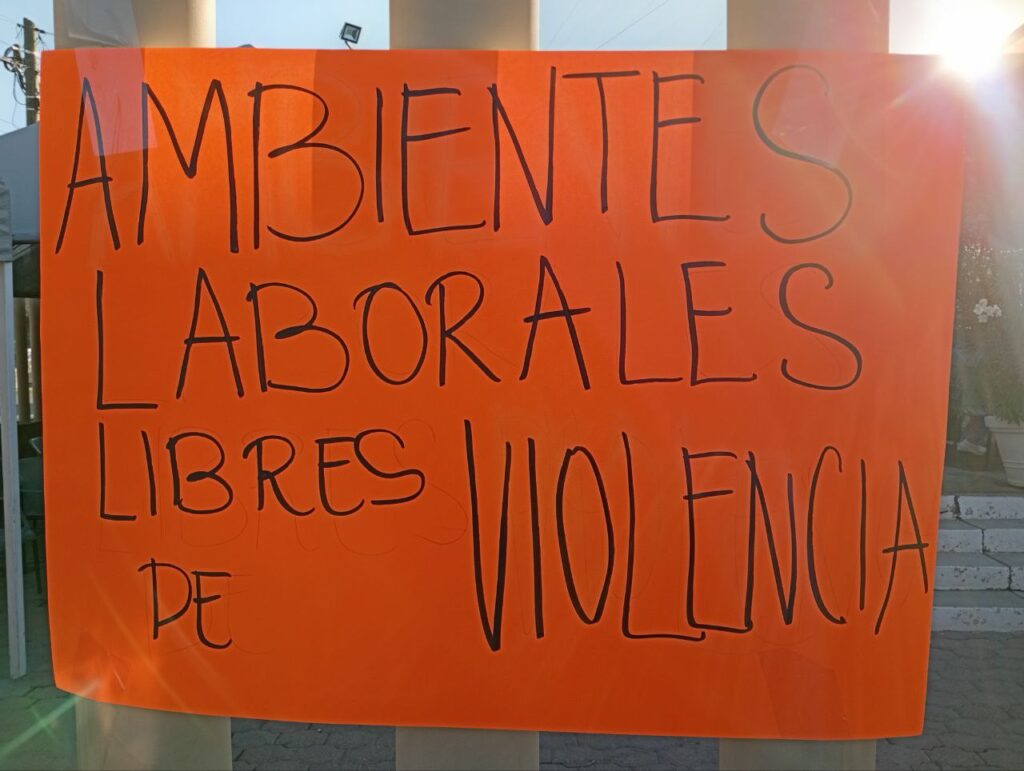 AMBIENTES
LABORALES
LIBRES
DE VIOLENCIA